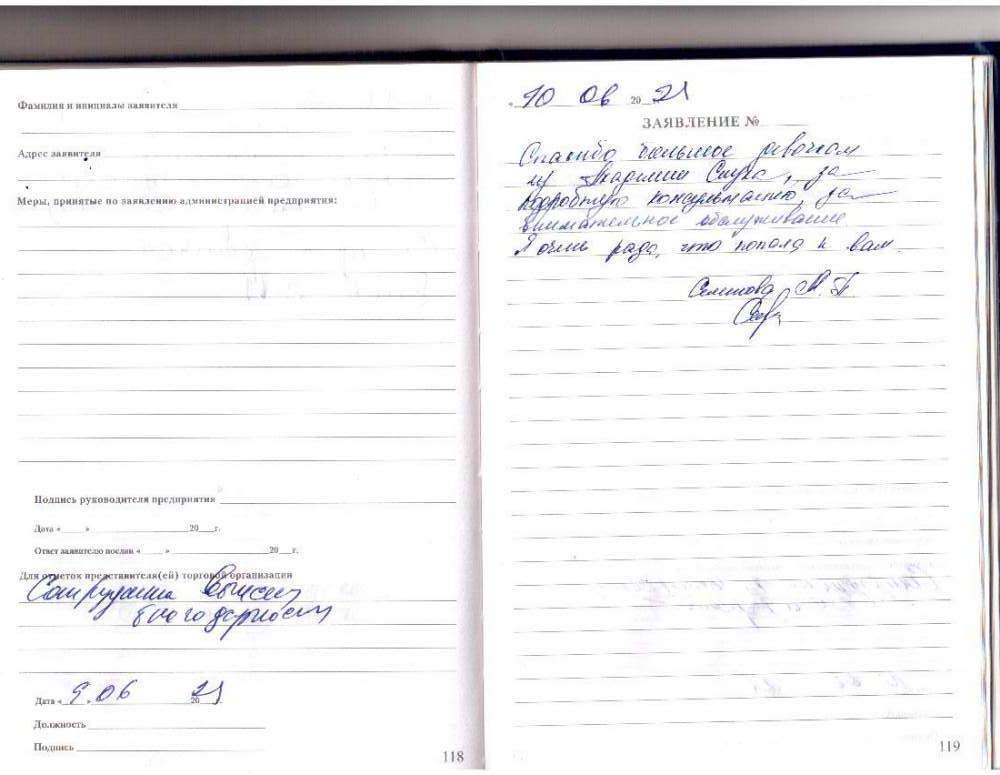 Фамилия и инициалы заявителя
Адрес заявителя
Меры, принятые по заявлению администрацией предприятия:
Подпись руководителя предприятия
Дата « » 20 г.
Ответ заявителю послан « » 20 г.
Для отметок представителя(ей) торговой организации
благодарность
Дата « 9 » 06 20 21
Должность
Подпись
118
« 10 06 20 21
ЗАЯВЛЕНИЕ №
Спасибо большое девочкам
из Академии Слуха, за
подробную консультацию, за
внимательное обслуживание.
Я очень рада, что попала к вам.
М.П.
119